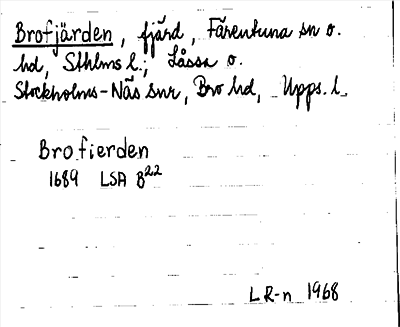 Brofjärden, fjärd, Färentuna sn o.
hd, Sthlms l.; Låssa o.
Stockholms-Näs snr, Bro hd, Upps. l.
Brofierden
1689 LSA B22
LR-n 1968